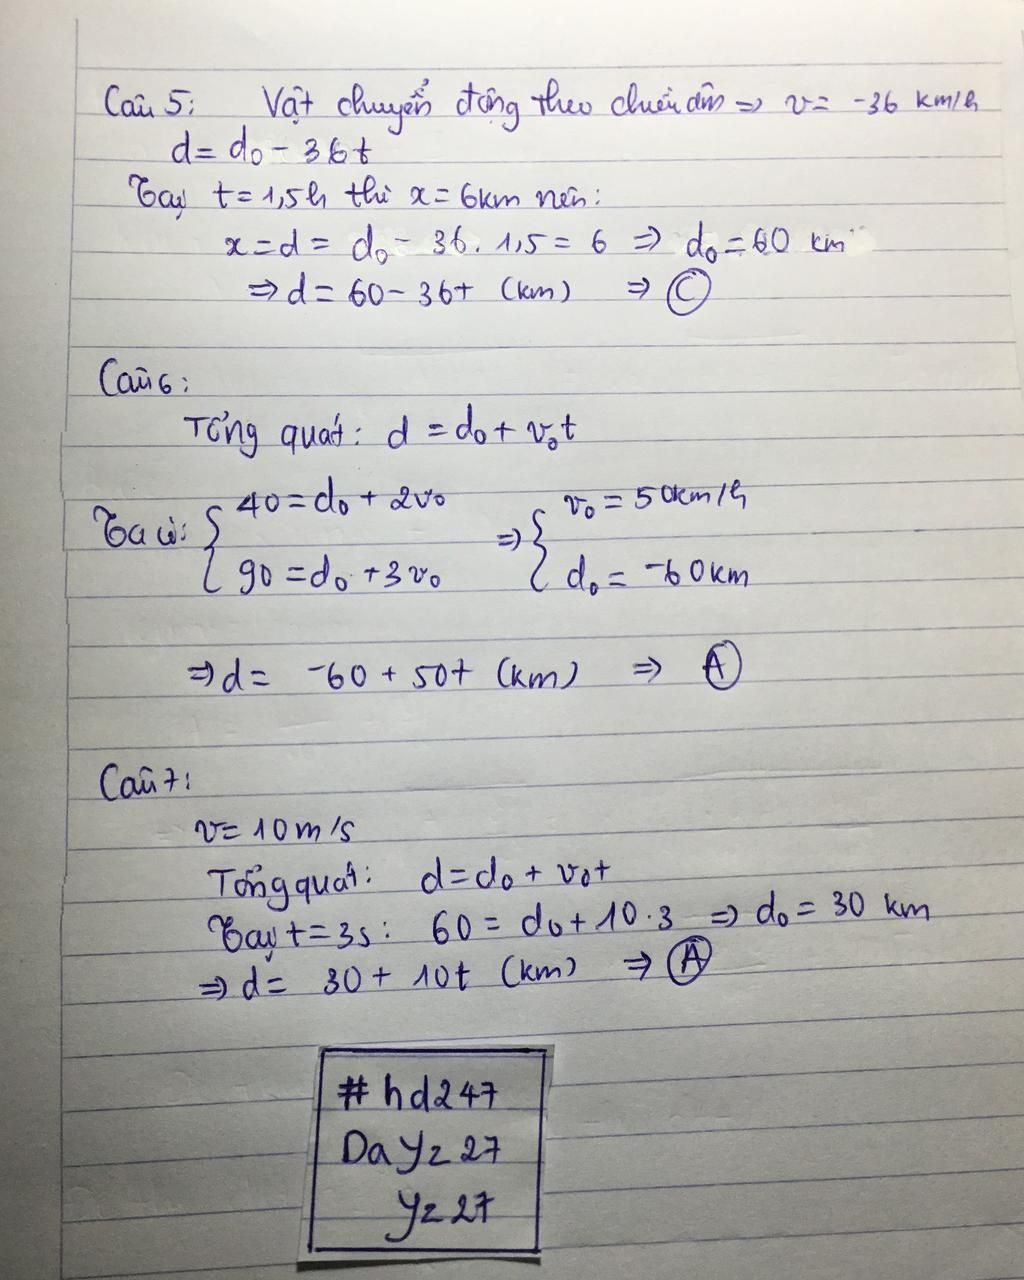 Câu 5: Vật chuyển động theo chiều âm => v = -36 km/h
d = d₀ - 36t
Tại t = 1,5h thì x = 6km nên:
x = d = d₀ - 36. 1,5 = 6 => d₀ = 60 km
=> d = 60 - 36t (km) => C
Câu 6:
Tổng quát: d = d₀ + v₀t
Ta có: { 40 = d₀ + 2v₀ => { v₀ = 50km/h
90 = d₀ + 3v₀ d₀ = -60km
=> d = -60 + 50t (km) => A
Câu 7:
v = 10 m/s
Tổng quát: d = d₀ + v₀t
Tại t = 3s: 60 = d₀ + 10.3 => d₀ = 30 km
=> d = 30 + 10t (km) => A
# hd247
DaYz27
Yz27